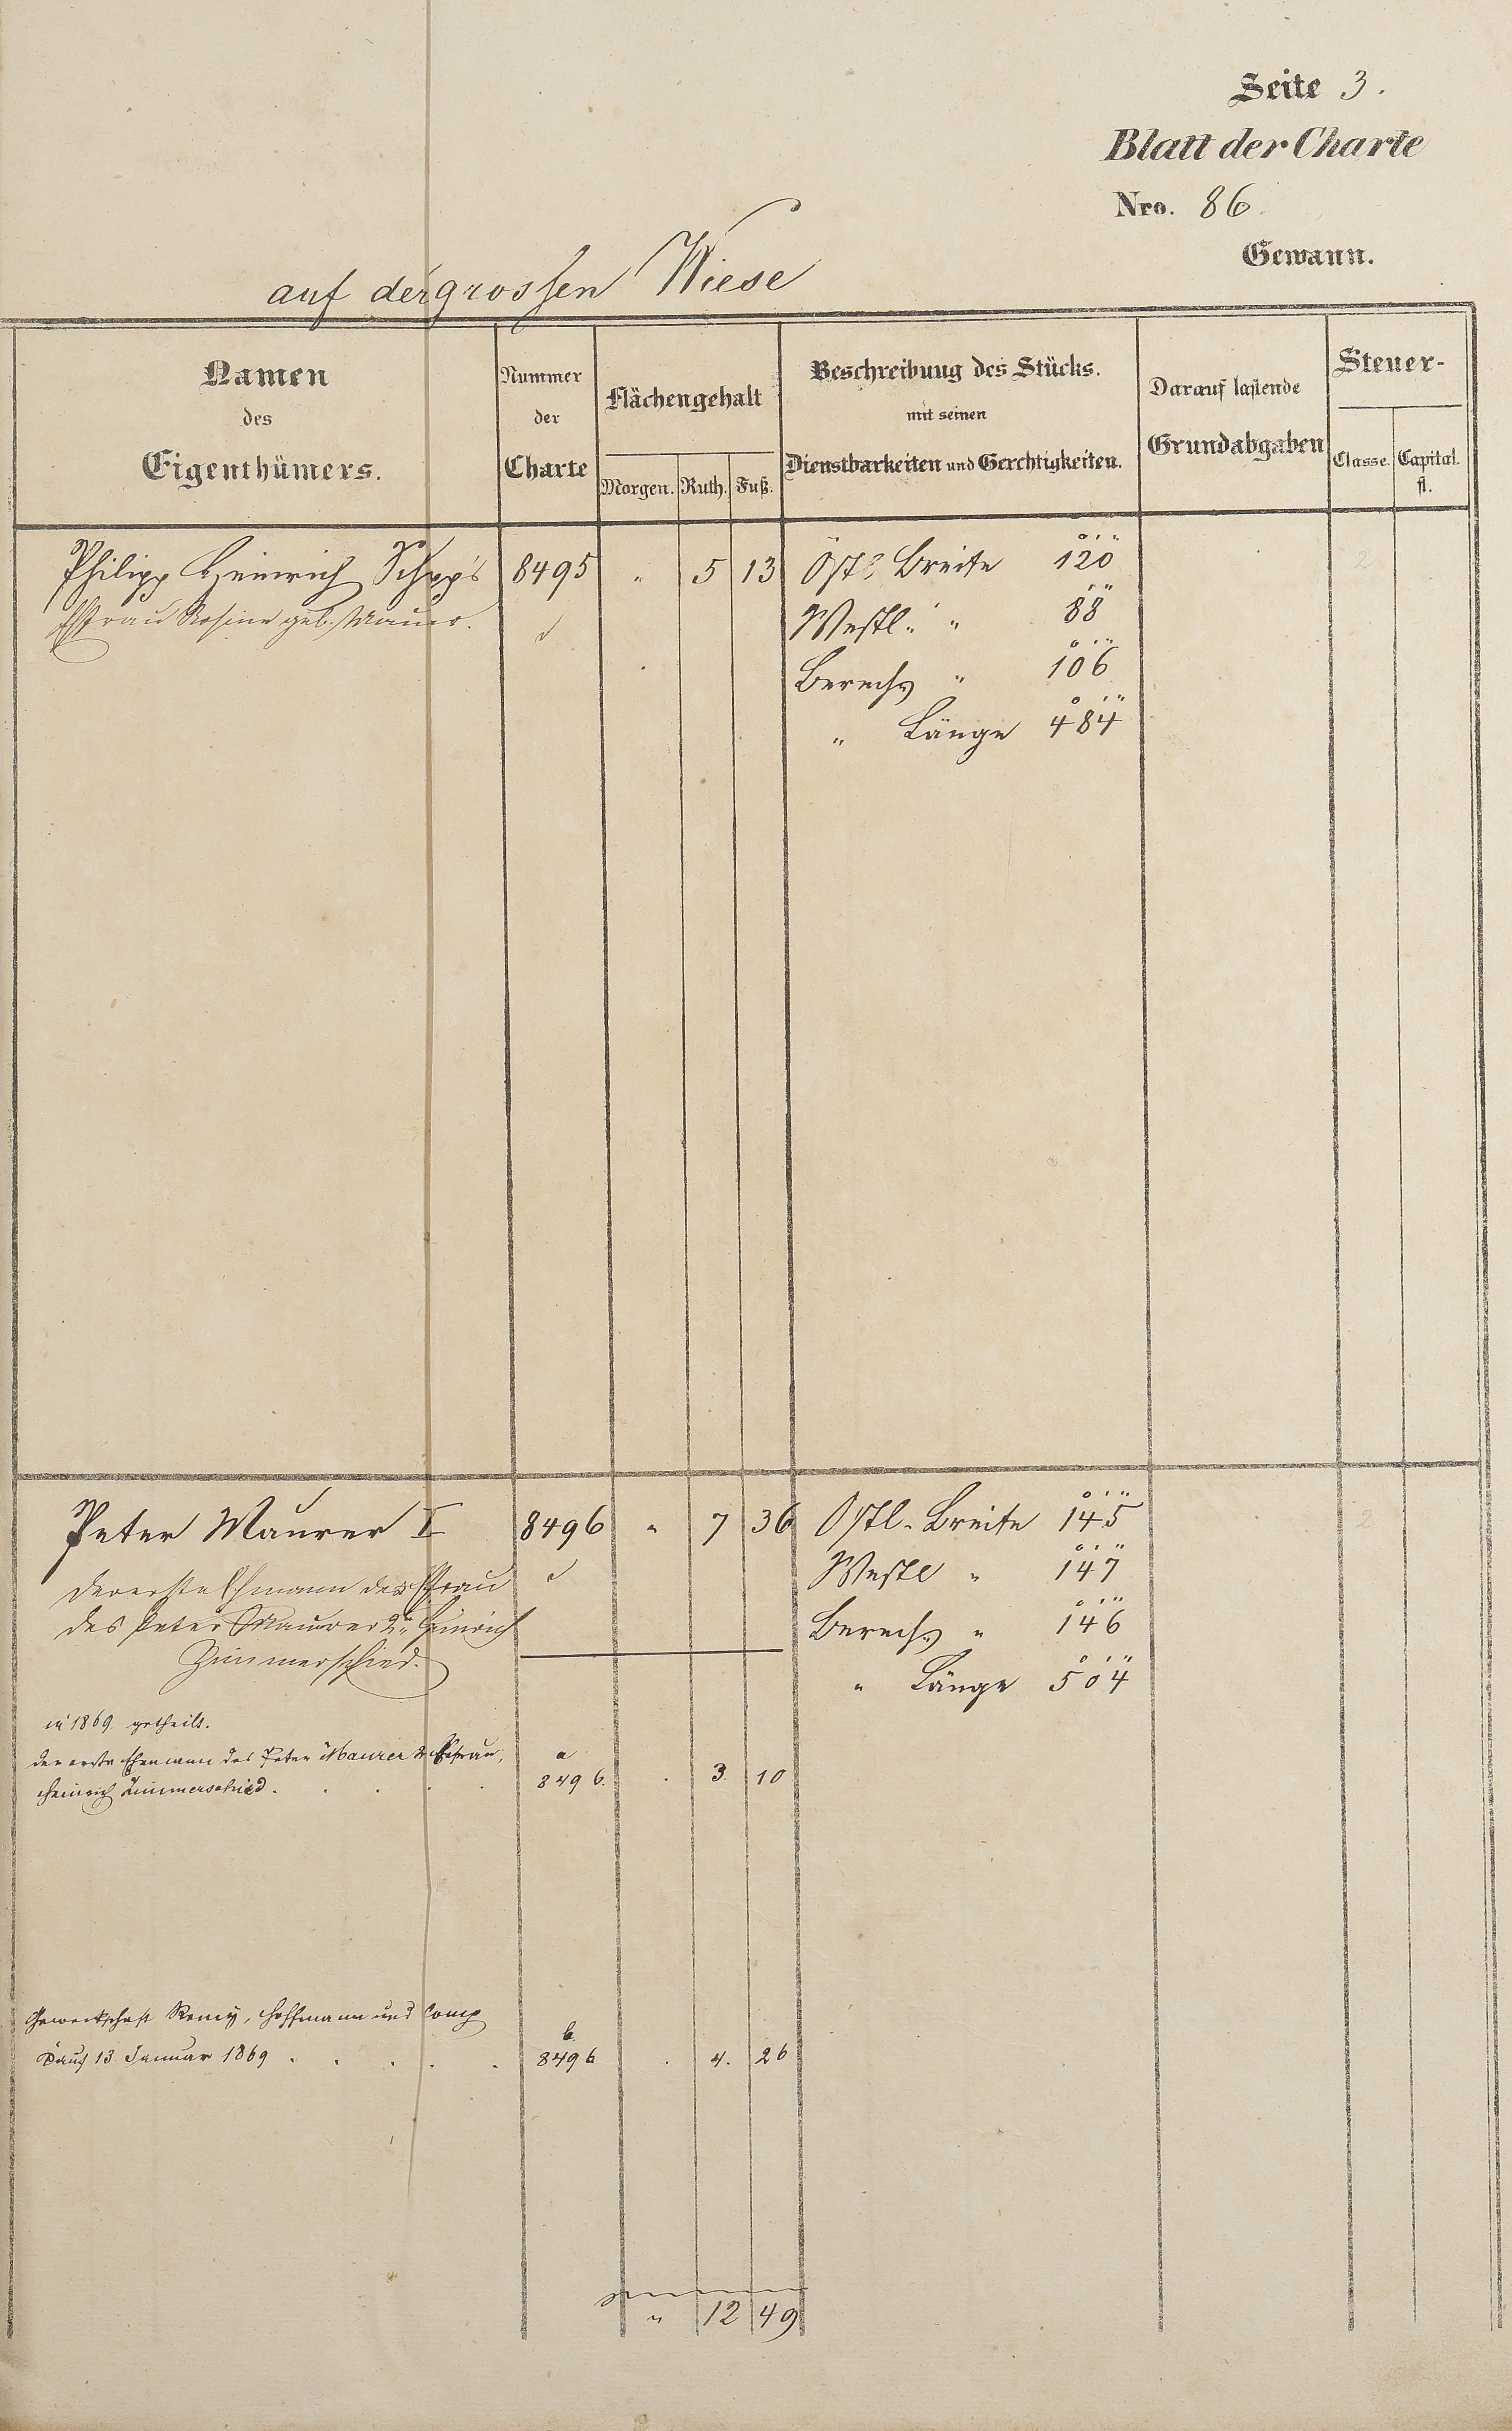 Seite 3.
Blatt der Charte
Nro. 86.
Gewann.
auf der grossen Wiese
Namen des Eigenthümers.
Nummer der Charte
Flächengehalt
Morgen. Ruth. Fuß.
Beschreibung des Stücks.
mit seinen
Dienstbarkeiten und Gerechtigkeiten.
Darauf lastende
Grundabgaben
Steuer-
Classe. Capital.
fl.
Philipp Heinrich 8495 " 5 13 Östl. Breite 120 2
Ehfrau Rosine geb. Maurer. Westl. " 88
Berech. " 106
" Länge 484
Peter Maurer I 8496 " 7 36 Östl. Breite 145 2
der erste Ehmann der Ehfrau Westl " 147
des Peter Maurer 2r Heinrich Berech. " 146
Zimmerschied. " Länge 504
in 1869 getheilt.
der erste Ehemann des Peter Maurer 2r Ehefrau, a
Heinrich Zimmerschied . . . . . 8496. . 3. 10
Gewerkschaft Remy, Hoffmann und Comp b.
13. Januar 1869 . . . . . 8496 . 4. 26
" 12 49